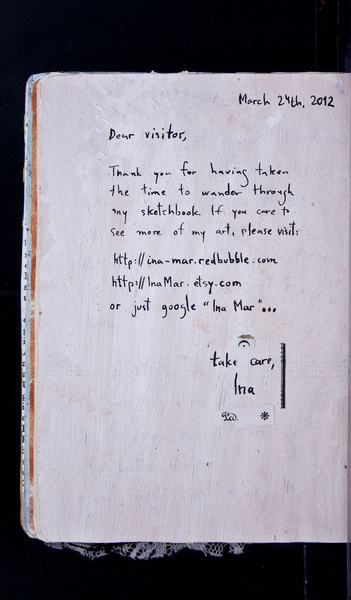 March 24th, 2012
Dear visitor,
Thank you for having taken
the time to wander through
my sketchbook. If you care to
see more of my art, please visit:
http://ina-mar.redbubble.com
http://InaMar.etsy.com
or just google "Ina Mar"...
take care,
Ina